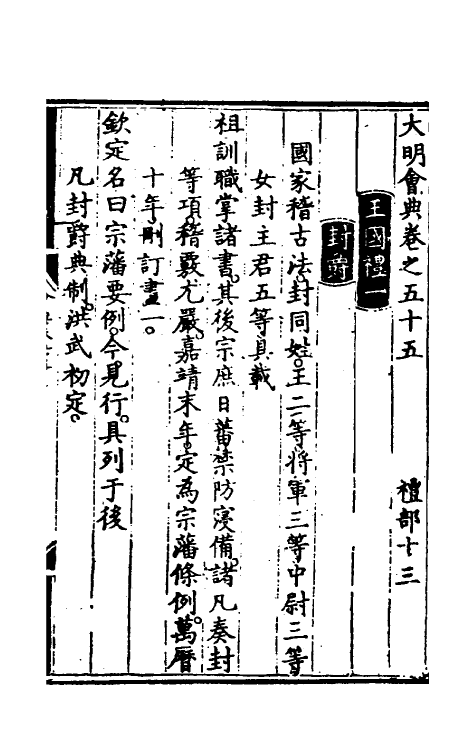 大明會典卷之五十五　禮部十三
王國禮一
封爵
國家稽古法封同姓王二等將軍三等中尉三等
女封主君五等具載
祖訓職掌諸書其後宗庶日蕃禁防寖備諸凡奏封
等項稽覈尤嚴嘉靖末年定為宗藩條例萬曆
十年刪訂畫一。
欽定名曰宗藩要例今見行具列于後
凡封爵典制洪武初定